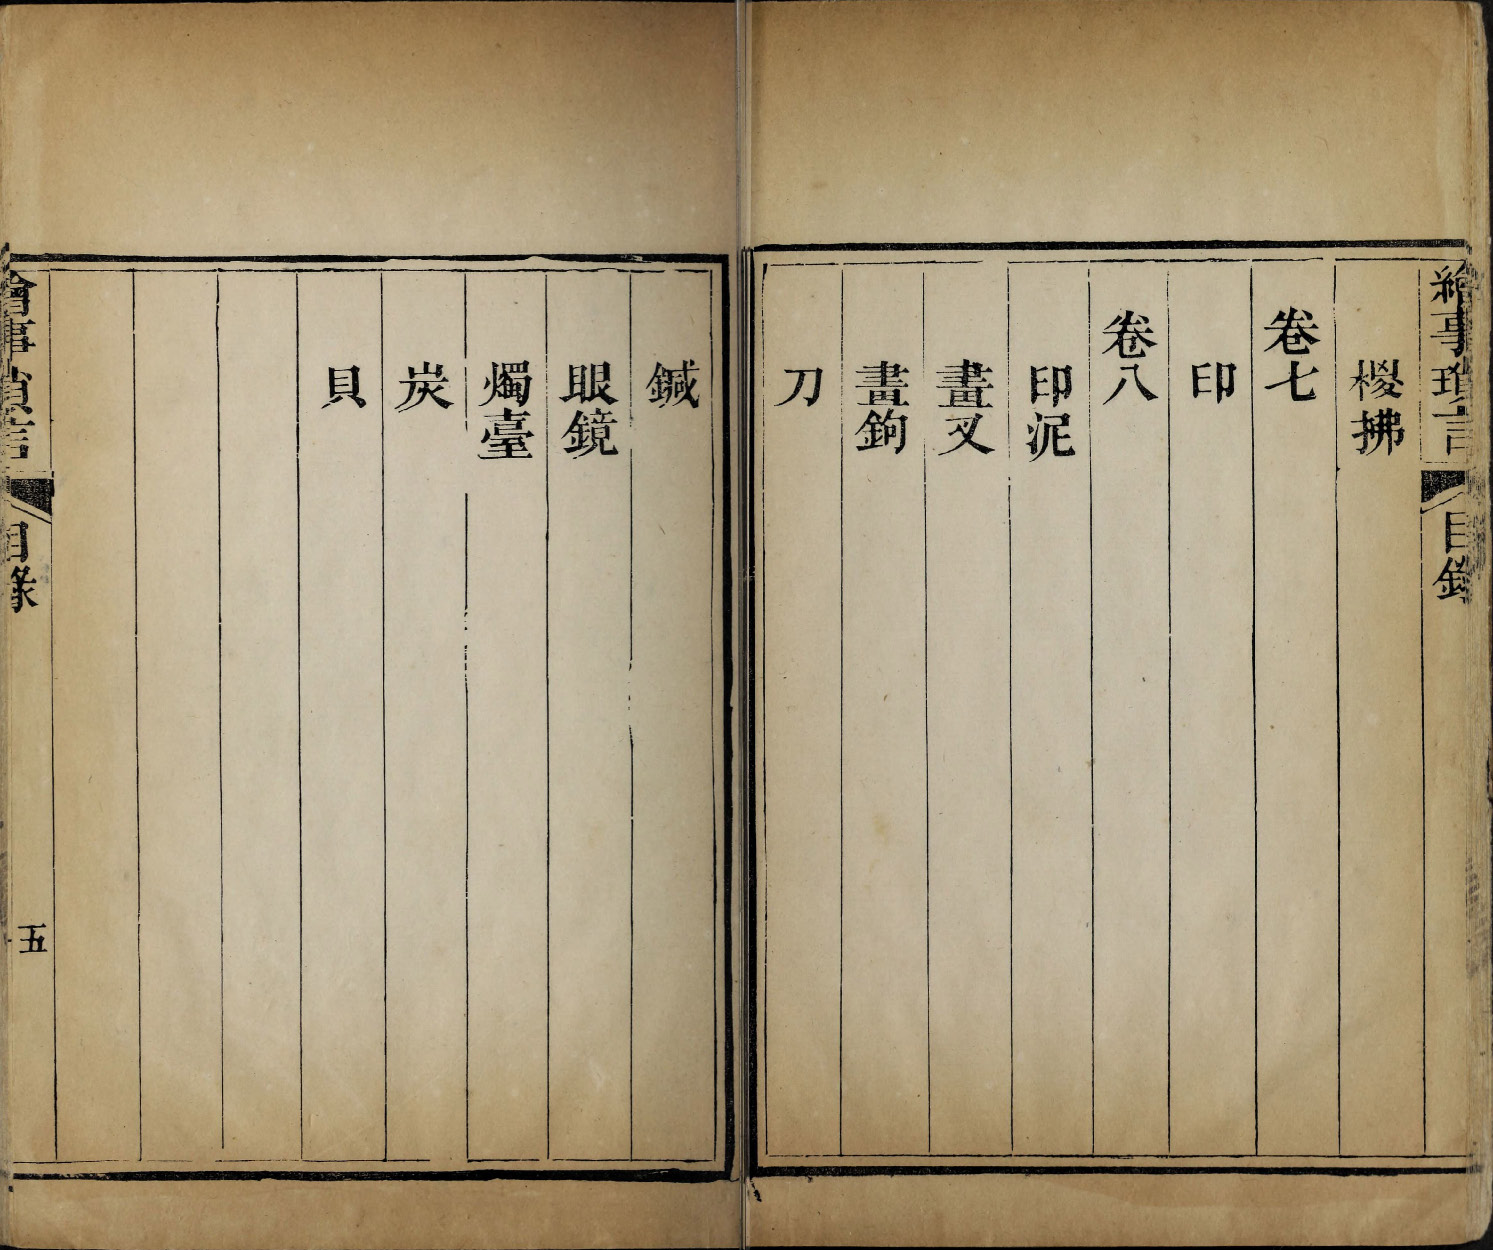 繪事瑣言 目錄
椶拂
卷七
印
卷八
印泥
畫叉
畫鉤
刀
鍼
眼鏡
燭臺
炭
貝
繪事瑣言 目錄 五